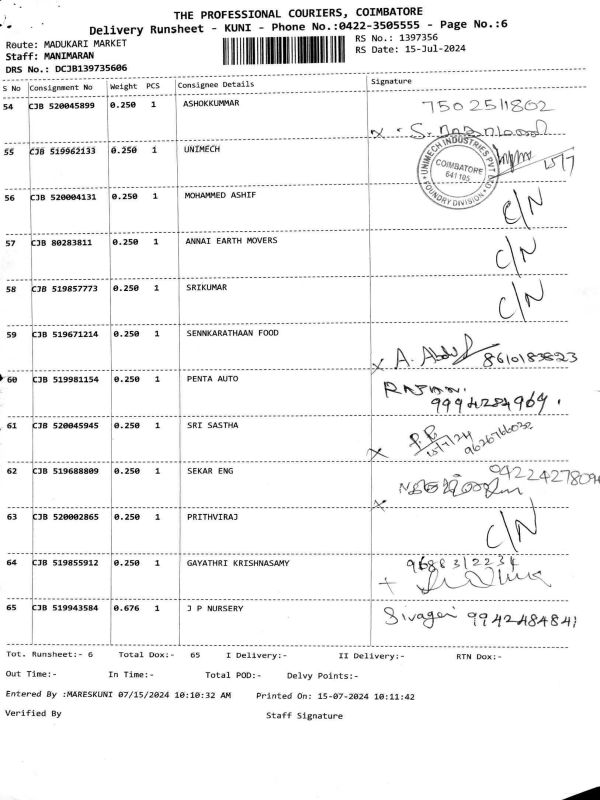 THE PROFESSIONAL COURIERS, COIMBATORE
Delivery Runsheet - KUNI - Phone No.:0422-3505555 - Page No.:6
Route: MADUKARI MARKET RS No.: 1397356
Staff: MANIMARAN RS Date: 15-Jul-2024
DRS No.: DCJB139735606
S No Consignment No Weight PCS Consignee Details Signature
54 CJB 520045899 0.250 1 ASHOKKUMMAR 7502511802
x
55 CJB 519962133 0.250 1 UNIMECH
UNIMECH INDUSTRIES PVT LTD
COIMBATORE
641 105
FOUNDRY DIVISION
15/7
56 CJB 520004131 0.250 1 MOHAMMED ASHIF C/N
57 CJB 80283811 0.250 1 ANNAI EARTH MOVERS C/N
58 CJB 519857773 0.250 1 SRIKUMAR C/N
59 CJB 519671214 0.250 1 SENNKARATHAAN FOOD
x A. Abdul 8610183823
60 CJB 519981154 0.250 1 PENTA AUTO RAJAN.
9994284969.
61 CJB 520045945 0.250 1 SRI SASTHA
x 15/7/24 9626766032
62 CJB 519688809 0.250 1 SEKAR ENG
x
63 CJB 520002865 0.250 1 PRITHVIRAJ C/N
64 CJB 519855912 0.250 1 GAYATHRI KRISHNASAMY 9688312234
65 CJB 519943584 0.676 1 J P NURSERY Sivagei 9942484841
Tot. Runsheet:- 6 Total Dox:- 65 I Delivery:- II Delivery:- RTN Dox:-
Out Time:- In Time:- Total POD:- Delvy Points:-
Entered By :MARESKUNI 07/15/2024 10:10:32 AM Printed On: 15-07-2024 10:11:42
Verified By Staff Signature